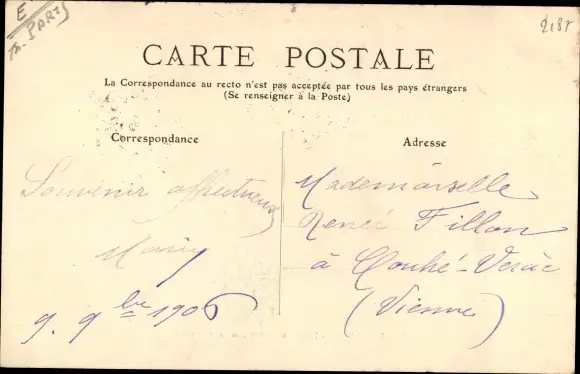 E
Th. PARIS
2187
CARTE POSTALE
La Correspondance au recto n'est pas acceptée par tous les pays étrangers
(Se renseigner à la Poste)
Correspondance
Adresse
Souvenir affectueux
9. 9bre 1906
Mademoiselle
Renée Fillon
à Couhé-Vérac
(Vienne)